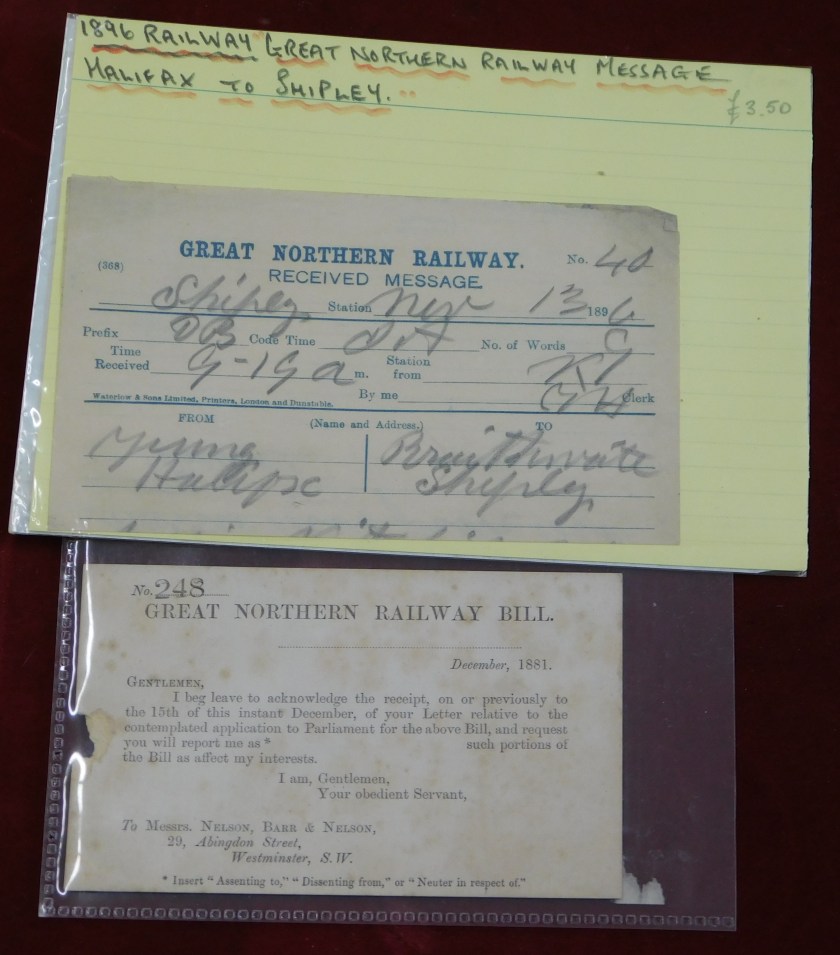 1896 RAILWAY GREAT NORTHERN RAILWAY MESSAGE
HALIFAX TO SHIPLEY.
£3.50
GREAT NORTHERN RAILWAY.
No. 40
(368)
RECEIVED MESSAGE.
Shipley Station Nov 13 1896
Prefix DB Code Time No. of Words
Time Received 9-19 a m. Station from
Waterlow & Sons Limited, Printers, London and Dunstable.
By me Clerk
FROM (Name and Address.) TO
Young Braithwaite
Halifax Shipley
No. 248
GREAT NORTHERN RAILWAY BILL.
December, 1881.
GENTLEMEN,
I beg leave to acknowledge the receipt, on or previously to
the 15th of this instant December, of your Letter relative to the
contemplated application to Parliament for the above Bill, and request
you will report me as * such portions of
the Bill as affect my interests.
I am, Gentlemen,
Your obedient Servant,
To Messrs. NELSON, BARR & NELSON,
29, Abingdon Street,
Westminster, S.W.
* Insert "Assenting to," "Dissenting from," or "Neuter in respect of."